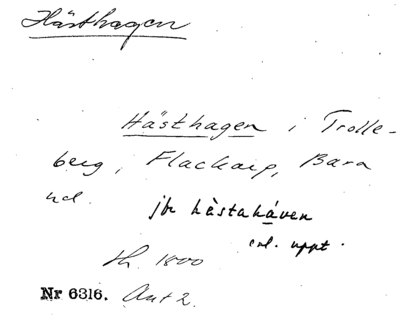 Hästhagen
Hästhagen i Trolle-
berg, Flackarp, Bara
hd.
jfr hästahåven
enl. uppt.
1800
Nr 6316. Ant 2.